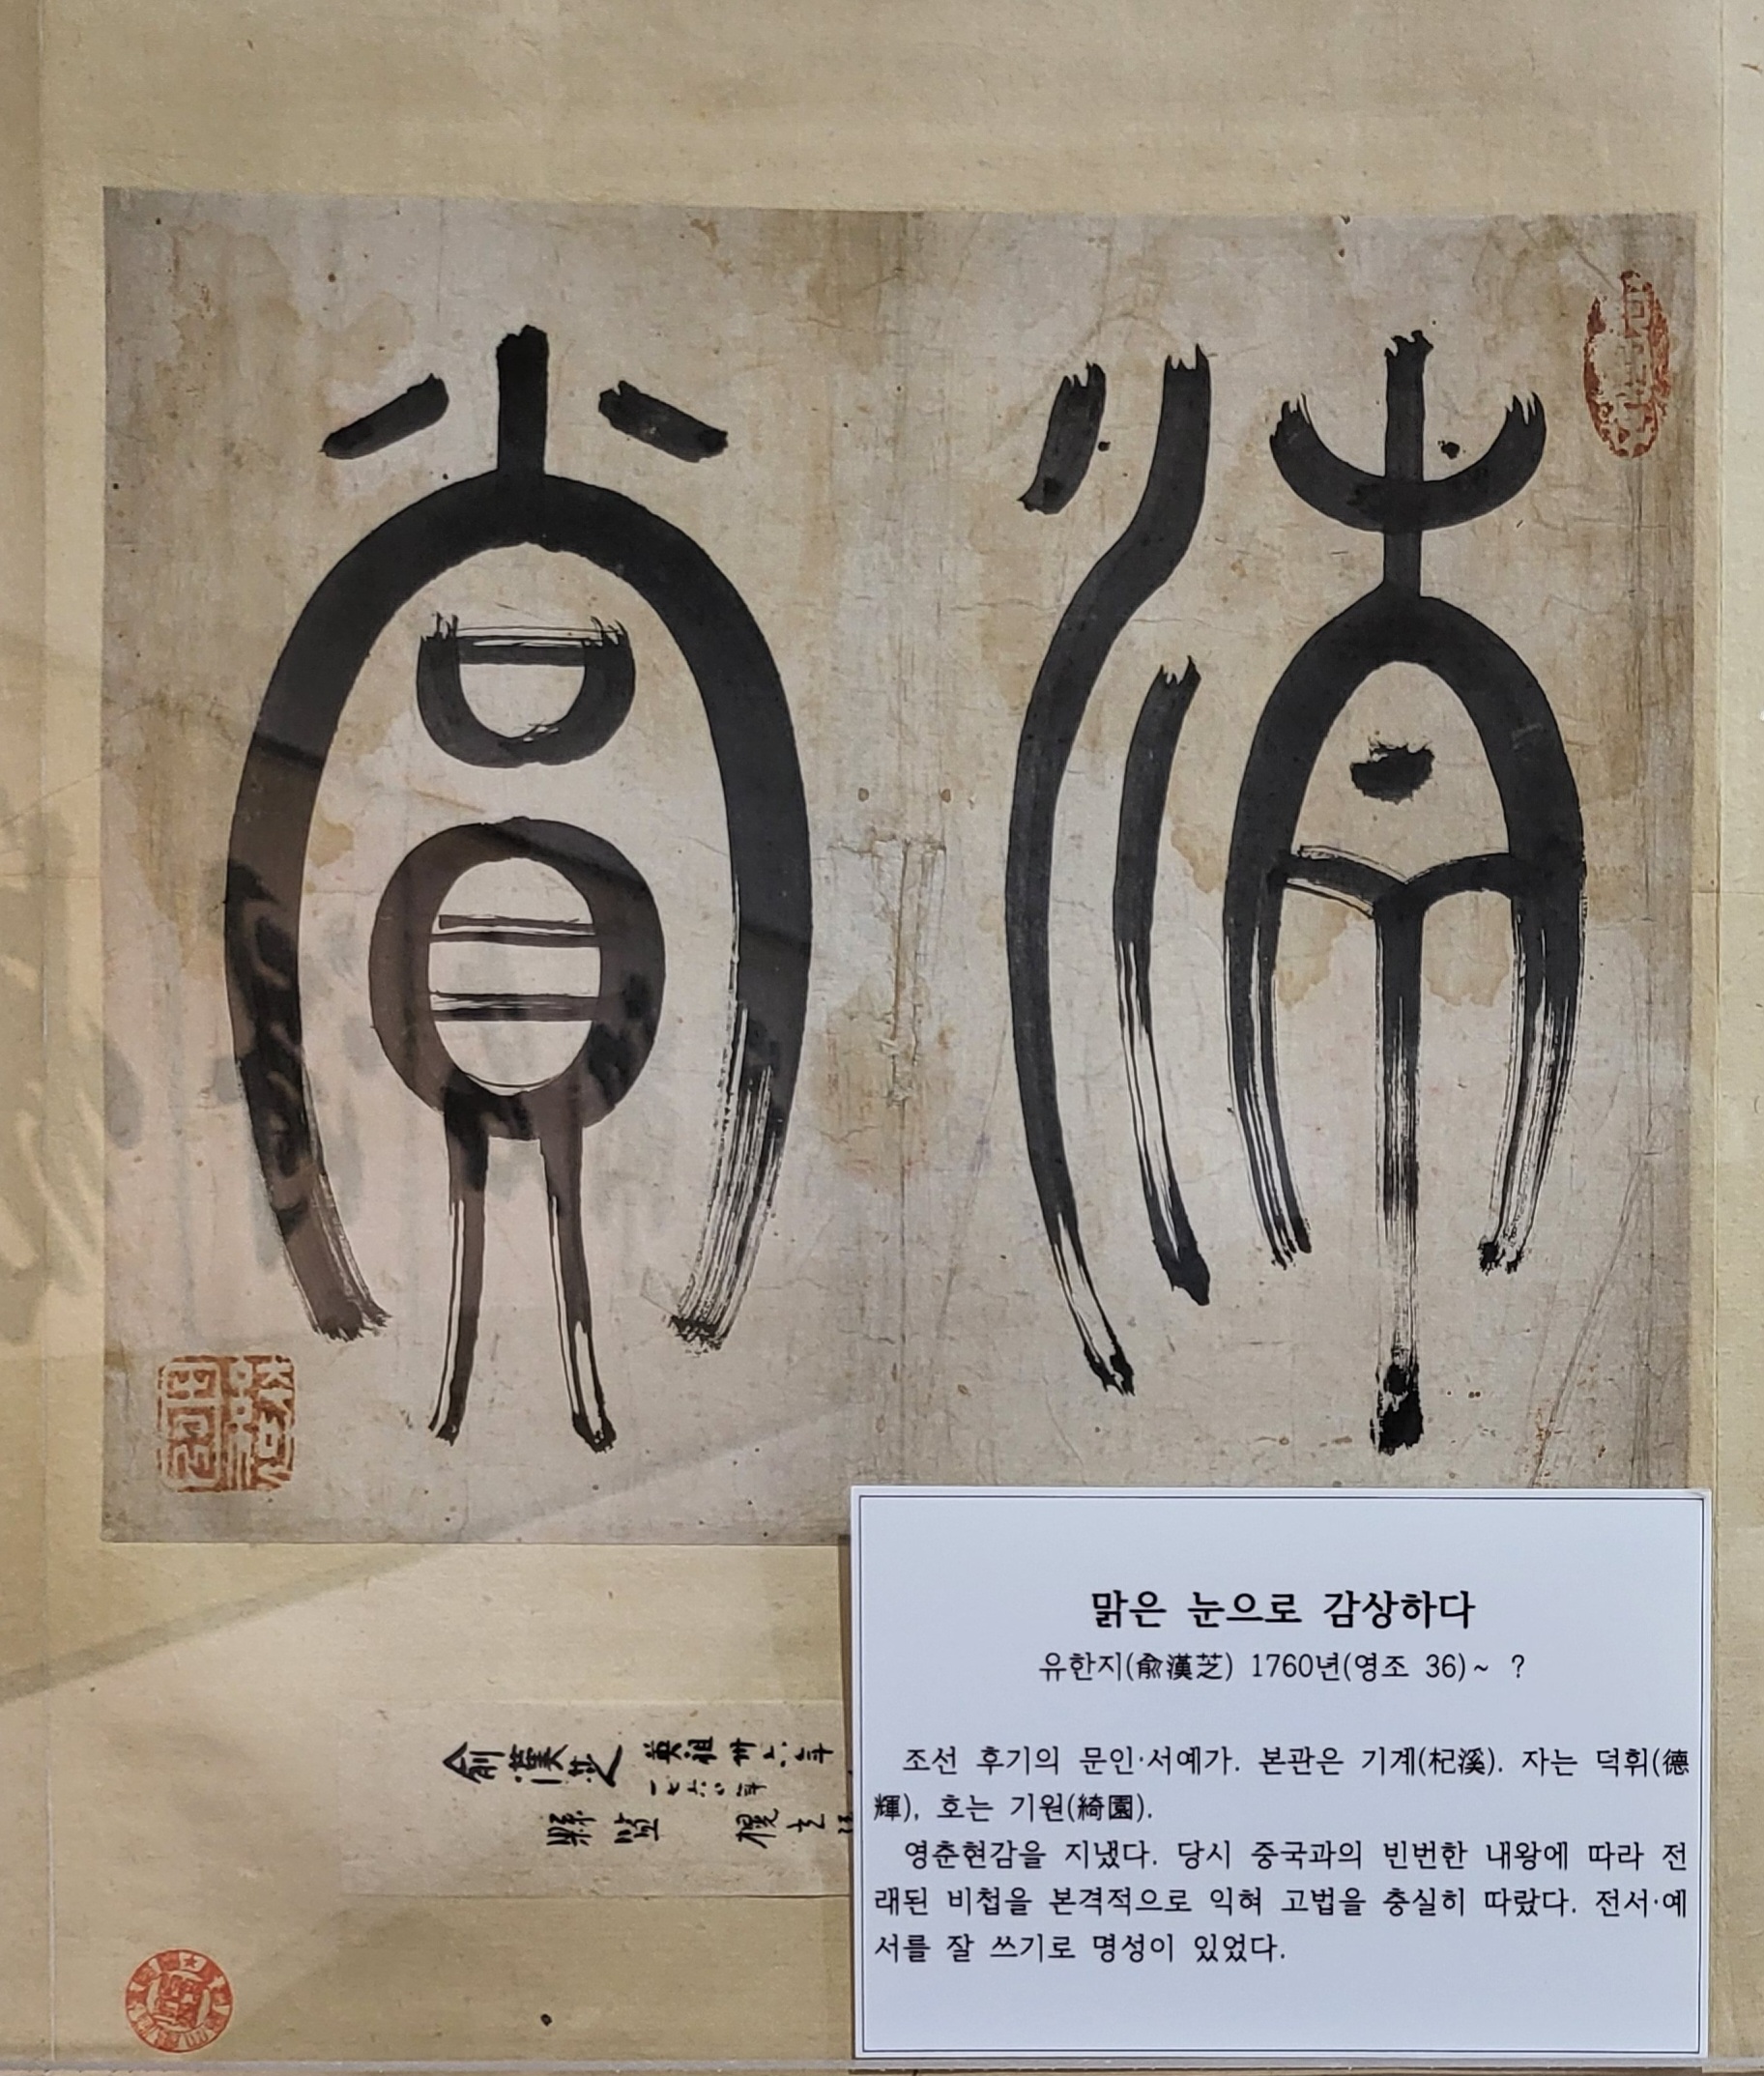 清賞
俞漢芝 英祖卅六年
一七六〇年
縣監
맑은 눈으로 감상하다
유한지(兪漢芝) 1760년(영조 36)~ ?
조선 후기의 문인·서예가. 본관은 기계(杞溪). 자는 덕휘(德
輝), 호는 기원(綺園).
영춘현감을 지냈다. 당시 중국과의 빈번한 내왕에 따라 전
래된 비첩을 본격적으로 익혀 고법을 충실히 따랐다. 전서·예
서를 잘 쓰기로 명성이 있었다.